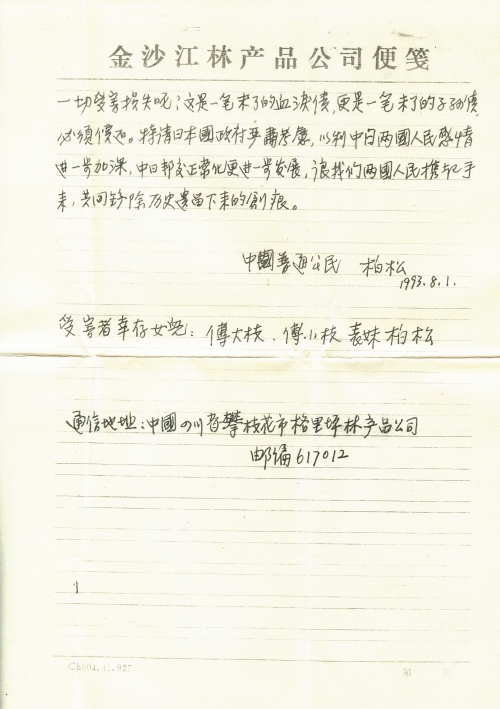 金沙江林产品公司便笺
一切受害损失呢？这是一笔未了的血泪债，更是一笔未了的子孙债
必须偿还。特请日本國政府严肃考慮，以利中日两國人民感情
进一步加深，中日邦交正常化更进一步发展，讓我们两國人民携起手
来，共同锌除历史遗留下来的創痕。
中國普通公民 柏松
1993.8.1.
受害者幸存女儿：傅大枝、傅小枝 表妹 柏松
通信地址：中國四川省攀枝花市格里坪林产品公司
邮编617012
Ch004.41.927
第